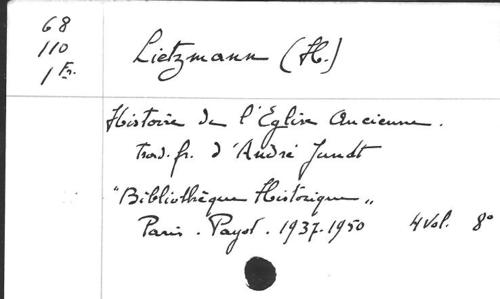 68
110
1 Fr.
Lietzmann (H.)
Histoire de l'Eglise Ancienne.
Trad. fr. d'André Jundt
"Bibliothèque Historique"
Paris. Payot. 1937-1950 4 Vol. 8°